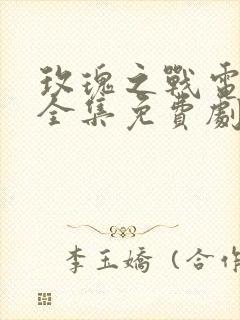 玫瑰之戰電
全集免費劇
李玉嬌（合作